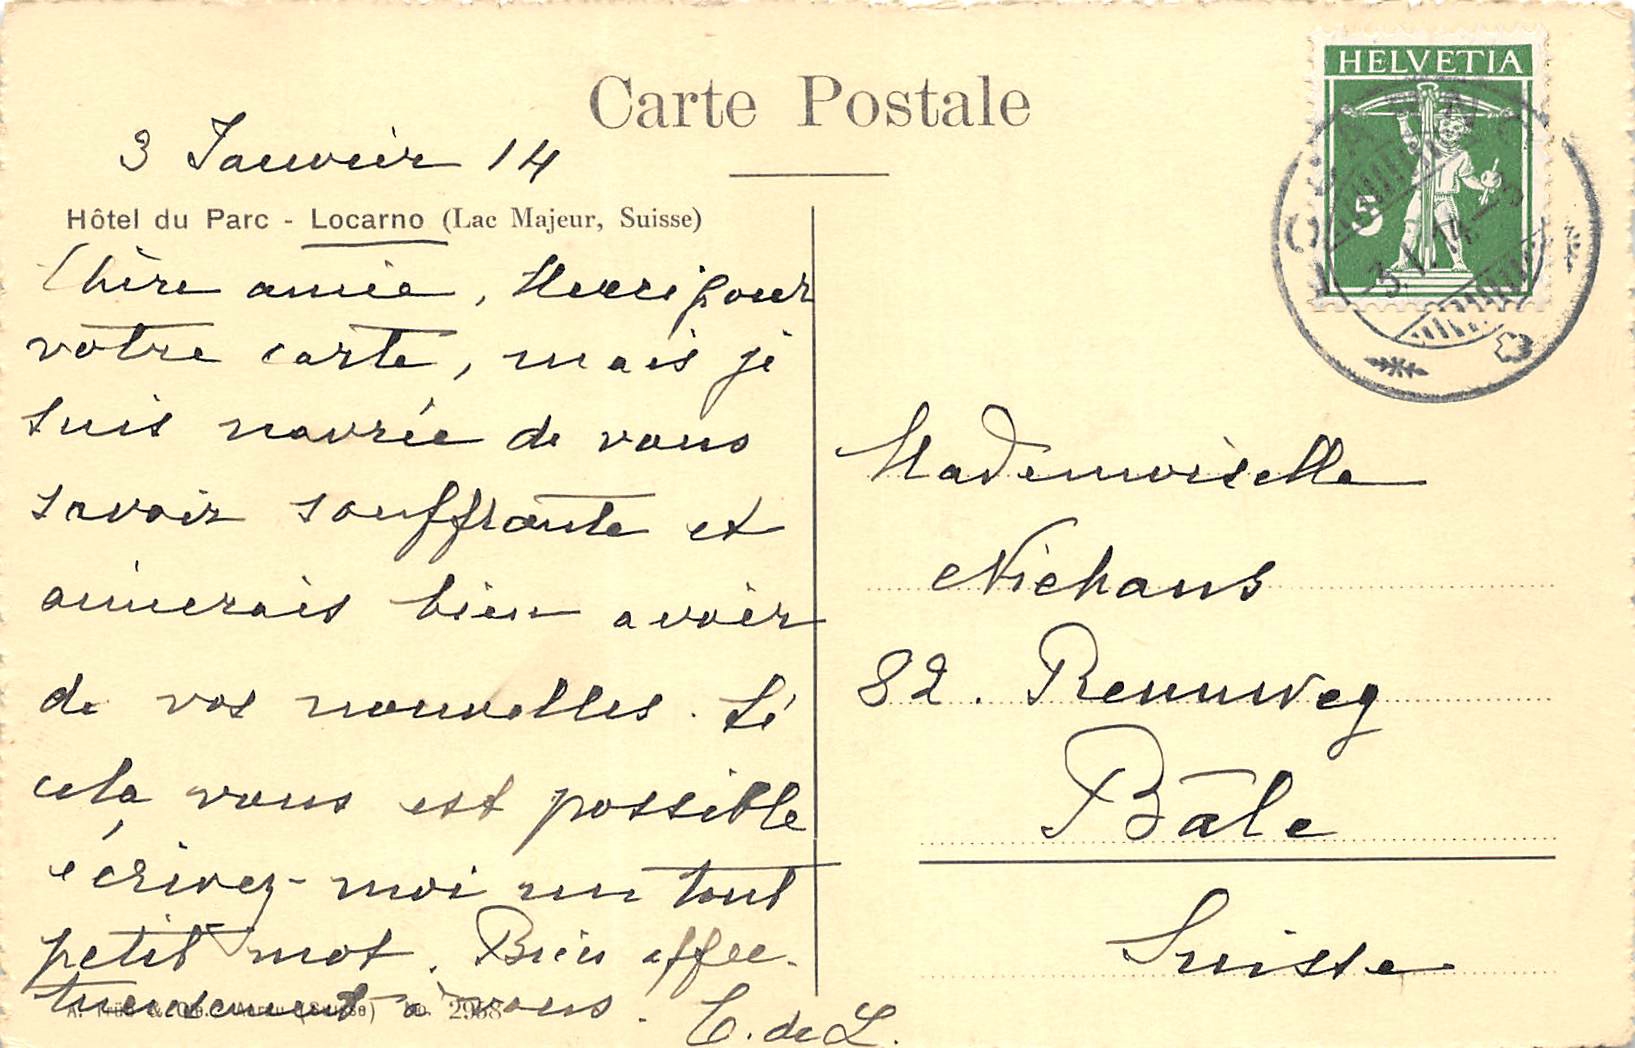 Carte Postale
HELVETIA
5
LOCARNO
3.I.14.—3
3 Janvier 14
Hôtel du Parc - Locarno (Lac Majeur, Suisse)
Chère amie, Merci pour
votre carte, mais je
suis navrée de vous
savoir souffrante et
aimerais bien avoir
de vos nouvelles. Si
cela vous est possible
écrivez-moi un tout
petit mot. Bien affec-
tueusement à vous.
C. de L.
2968
Mademoiselle
Niehans
82. Rennweg
Bâle
Suisse